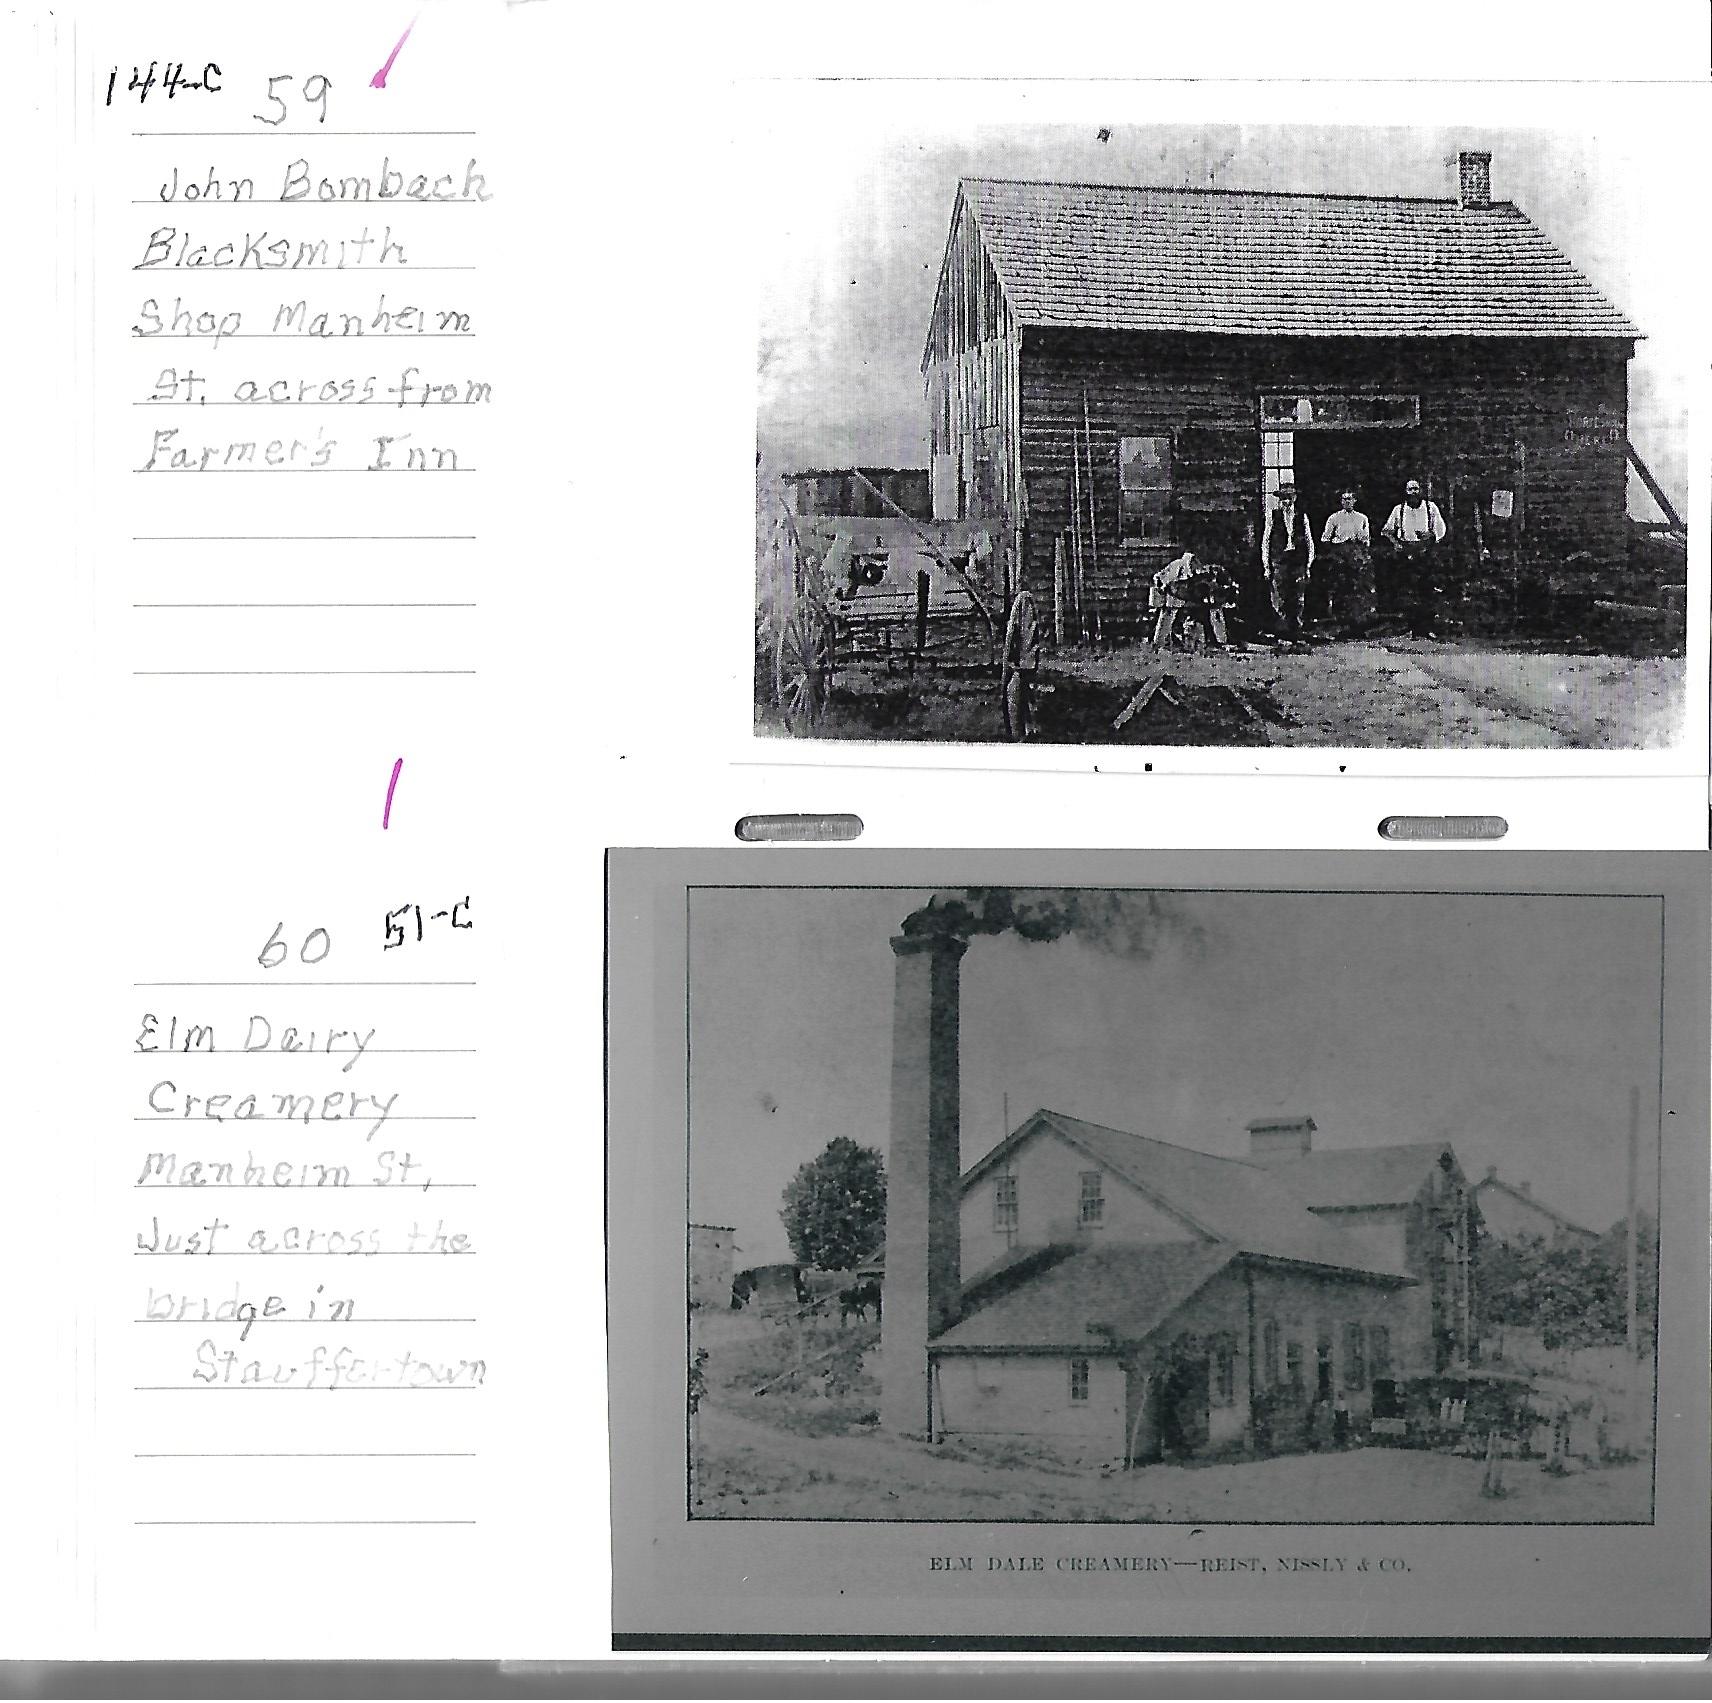 144-C 59
John Bombach
Blacksmith
Shop Manheim
St. across from
Farmer's Inn
60 51-C
Elm Dairy
Creamery
Manheim St,
Just across the
bridge in
Stauffertown
ELM DALE CREAMERY—REIST, NISSLY & CO.